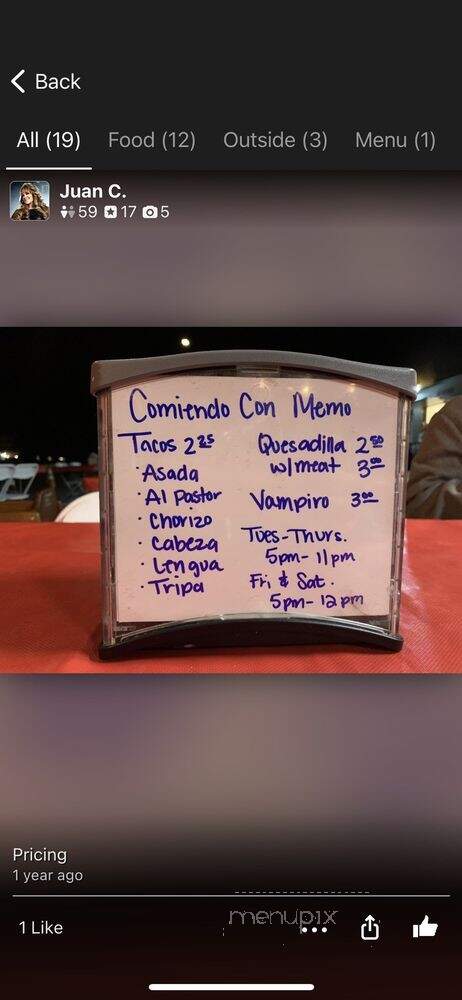 Back
All (19) Food (12) Outside (3) Menu (1)
Juan C.
59 17 5
Comiendo Con Memo
Tacos 2.25
· Asada
· Al Pastor
· Chorizo
· Cabeza
· Lengua
· Tripa
Quesadilla 2.50
w/meat 3.00
Vampiro 3.00
Tues-Thurs.
5pm-11pm
Fri & Sat.
5pm-12pm
Pricing
1 year ago
1 Like
menupix